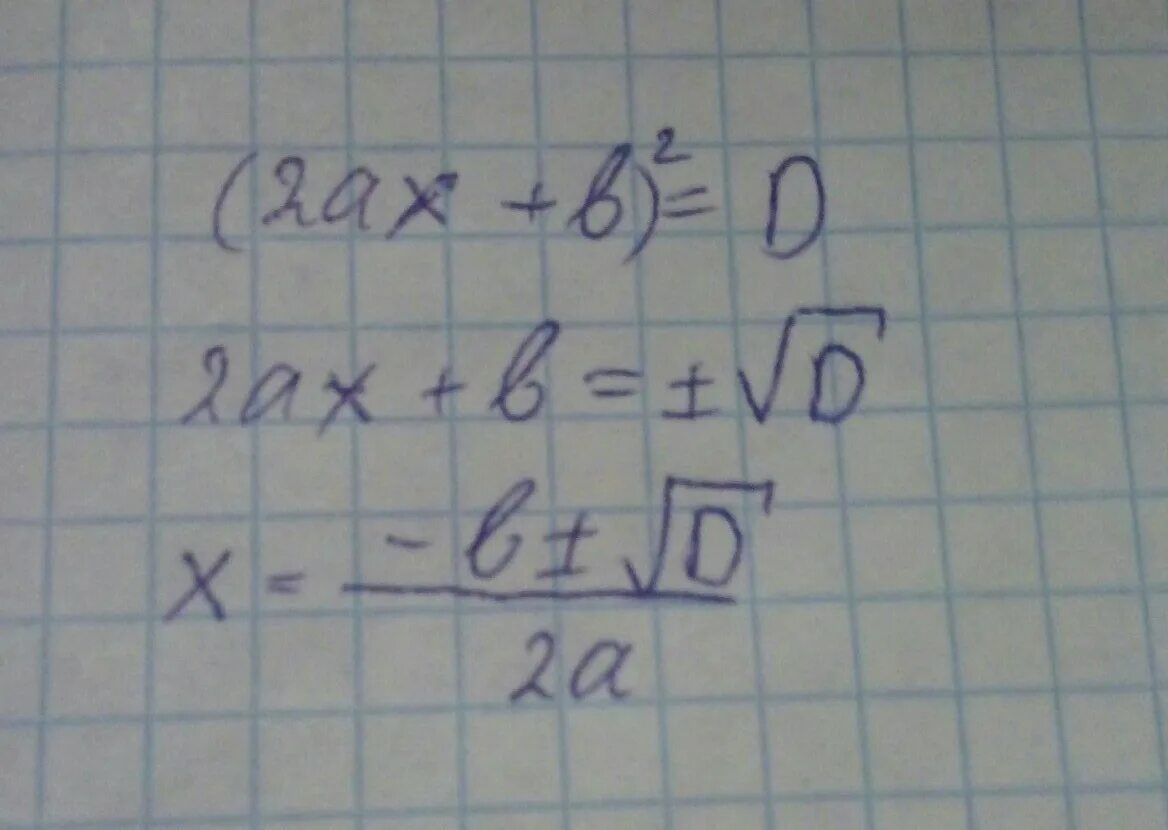 (2ax + b)² = D
2ax + b = ±√D
x = (-b ± √D) / 2a